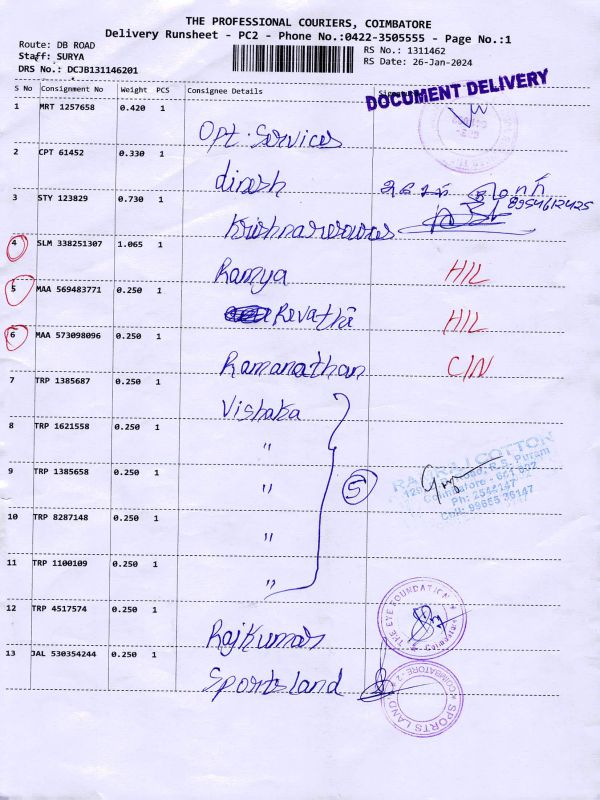 THE PROFESSIONAL COURIERS, COIMBATORE
Delivery Runsheet - PC2 - Phone No.:0422-3505555 - Page No.:1
Route: DB ROAD
Staff: SURYA
DRS No.: DCJB131146201
RS No.: 1311462
RS Date: 26-Jan-2024
DOCUMENT DELIVERY
S No Consignment No Weight PCS Consignee Details
1 MRT 1257658 0.420 1 Opt. Services
2 CPT 61452 0.330 1 dinesh
3 STY 123829 0.730 1 8954612425
4 SLM 338251307 1.065 1 Ramya H/L
5 MAA 569483771 0.250 1 Revathi H/L
6 MAA 573098096 0.250 1 Ramanathan C/N
7 TRP 1385687 0.250 1 Vishaka
8 TRP 1621558 0.250 1 "
9 TRP 1385658 0.250 1 "
5
COTTON
R.S. Puram
Coimbatore - 641 002
Ph: 2544147
Cell: 99655 36147
10 TRP 8287148 0.250 1 "
11 TRP 1100109 0.250 1 "
12 TRP 4517574 0.250 1 Rajkumar
THE EYE FOUNDATION
13 JAL 530354244 0.250 1 Sportsland
SPORTS LAND
COIMBATORE - 2